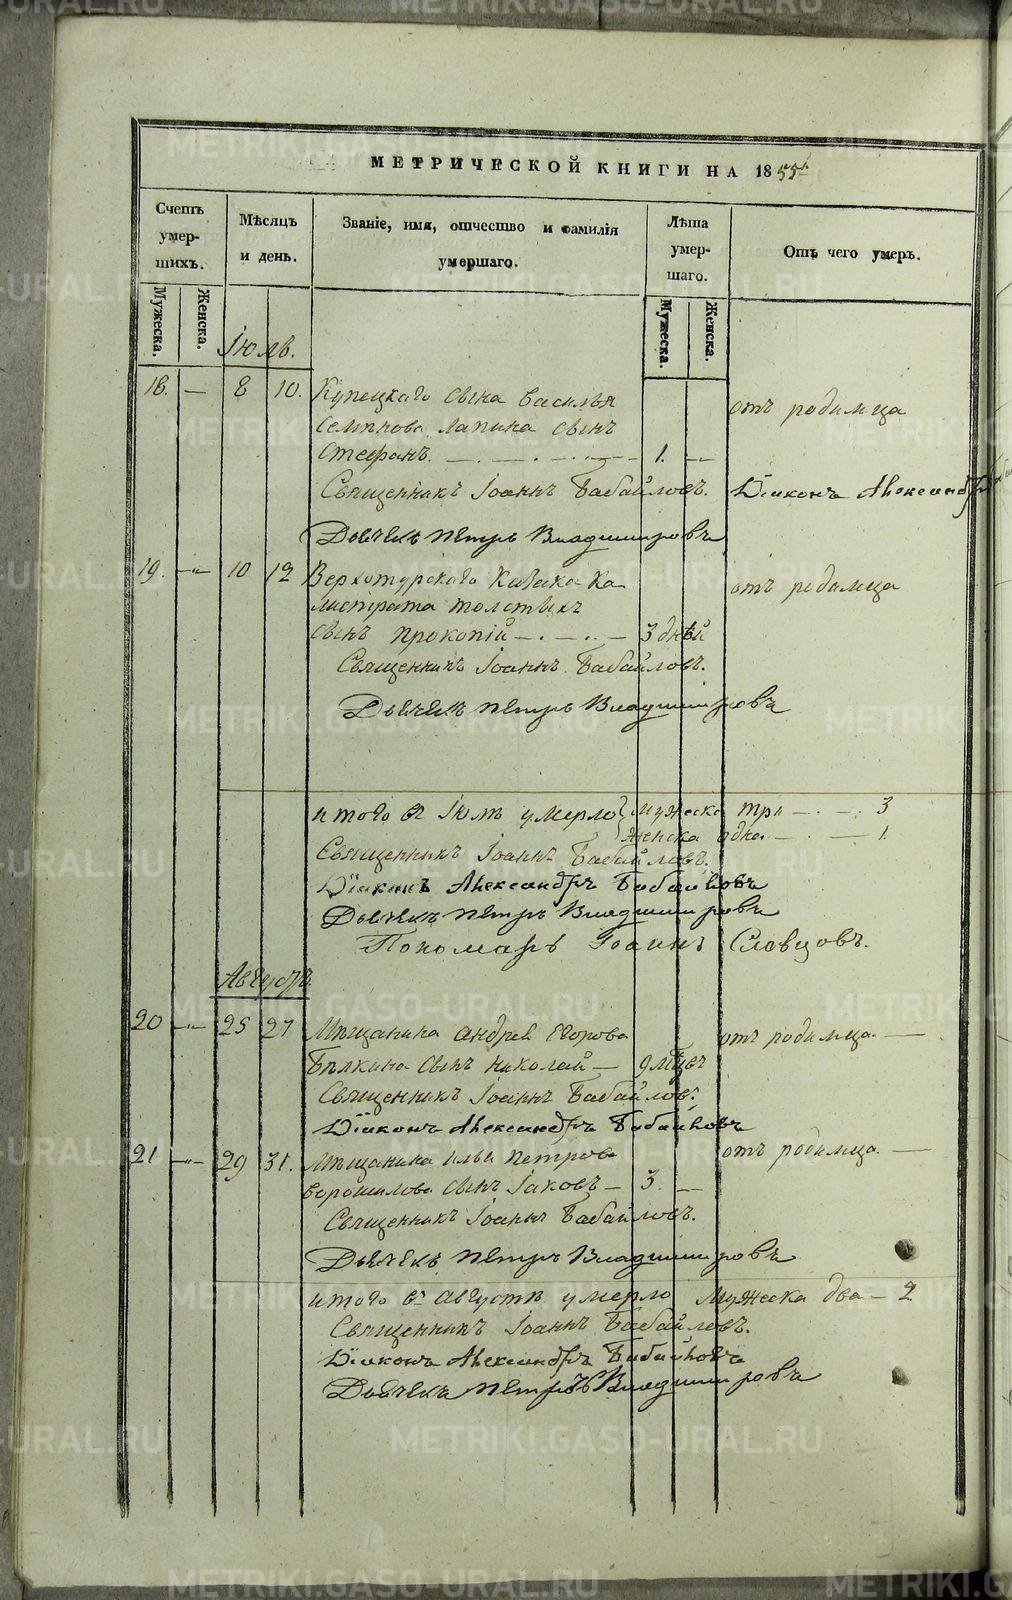 МЕТРИЧЕСКОЙ КНИГИ НА 1855г
Счетъ умер-шихъ.
Мѣсяцъ и день.
Званіе, имя, отчество и фамилія умершаго.
Лѣта умер-шаго.
Отъ чего умеръ.
Мужеска. Женска.
Мужеска. Женска.
Іюль.
18. — 8 10. Купецкаго сына Василья отъ родимца
Семенова Лапина сынъ
Стефанъ. 1. —
Священникъ Іоаннъ Бабайловъ. Діаконъ Александръ
Дьячекъ Петръ Владимировъ
19. — 10 12 Верхотурскаго Казака Ка- отъ родимца
листрата Толстыхъ
сынъ Прокопій — 3 дней
Священникъ Іоаннъ Бабайловъ.
Дьячекъ Петръ Владимировъ
итого въ Іюлѣ умерло мужеска три — 3
женска одна — 1.
Священникъ Іоаннъ Бабайловъ.
Діаконъ Александръ Бабайловъ
Дьячекъ Петръ Владимировъ
Пономарь Іоаннъ Словцовъ.
Августъ.
20 — 25 27 Мѣщанина Андрея Егорова отъ родимца. —
Бѣлкина сынъ Николай — 9 мѣсец
Священникъ Іоаннъ Бабайловъ.
Діаконъ Александръ Бабайловъ
21 — 29 31. Мѣщанина Ильи Петрова отъ родимца. —
Ворошилова сынъ Іаковъ — 3. —
Священникъ Іоаннъ Бабайловъ.
Дьячекъ Петръ Владимировъ
итого въ Августѣ умерло мужеска два — 2
Священникъ Іоаннъ Бабайловъ.
Діаконъ Александръ Бабайловъ
Дьячекъ Петръ Владимировъ
METRIKI.GASO-URAL.RU